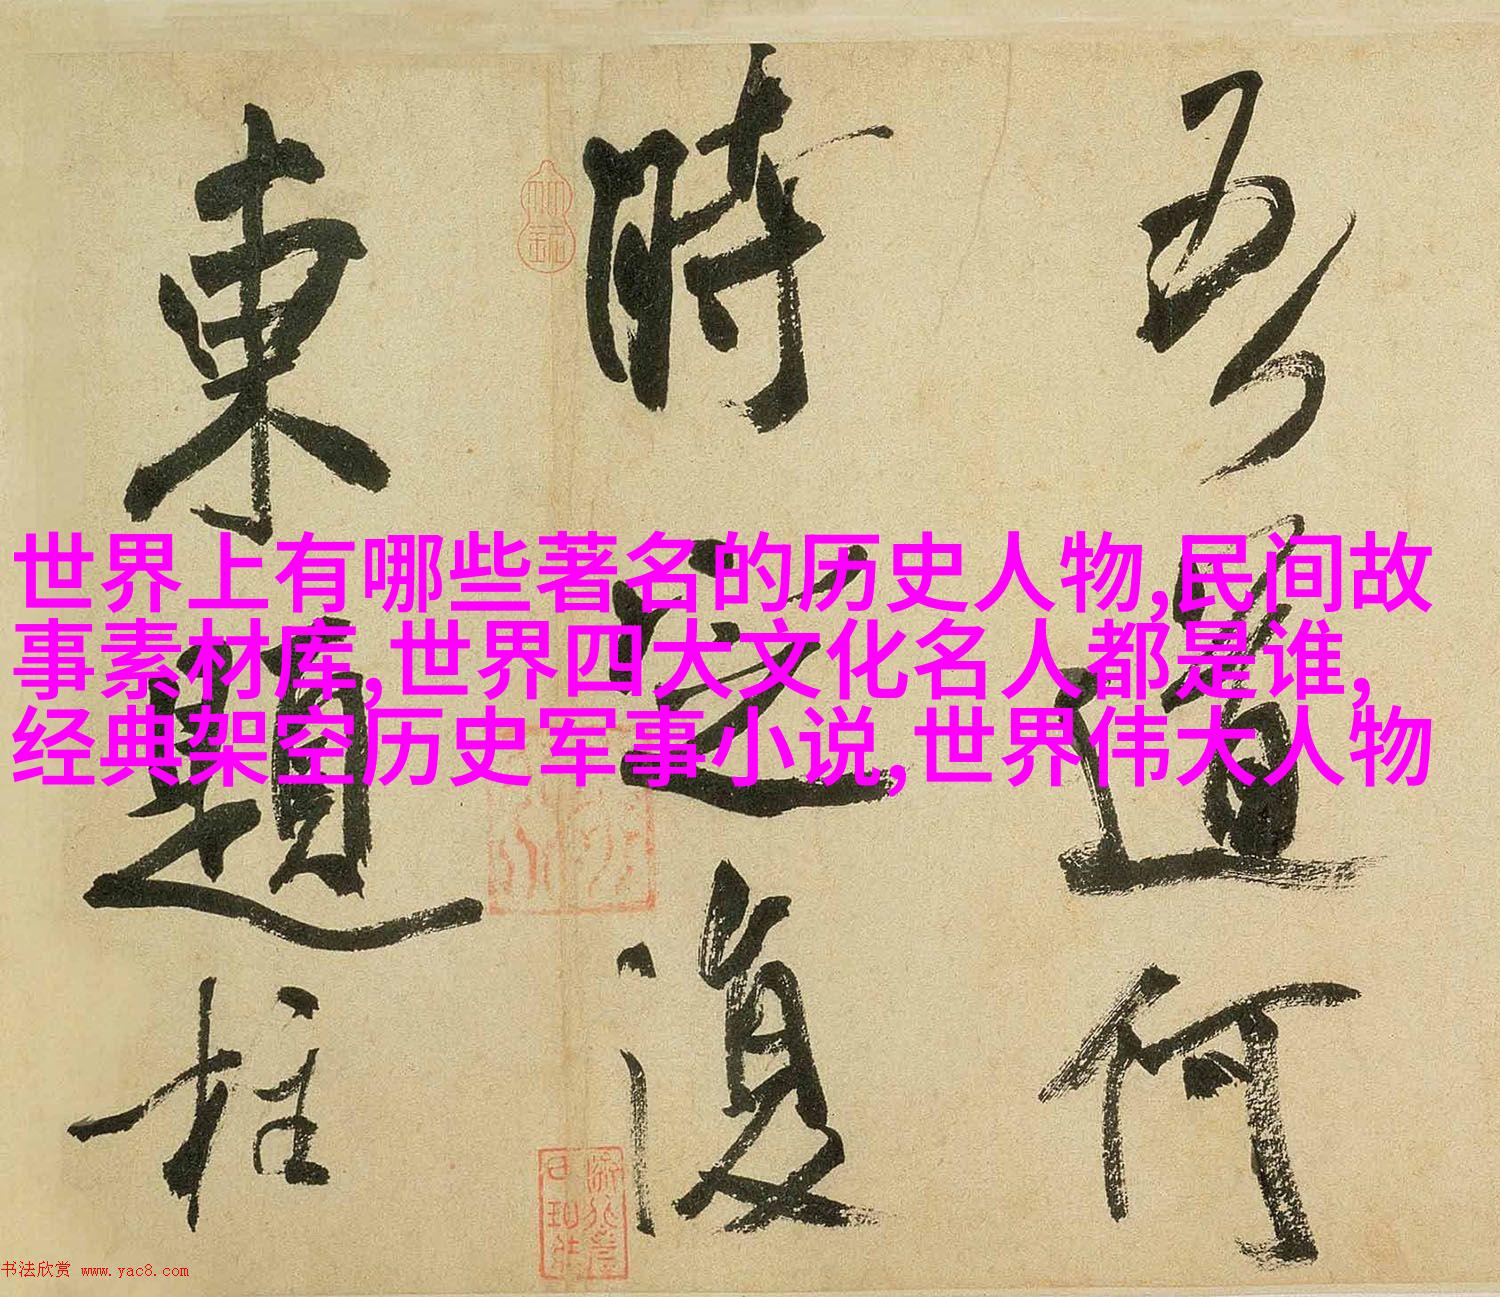 吾道何
時定復
東題柱
世界上有哪些著名的历史人物,民间故
事素材库,世界四大文化名人都是谁,
经典架空历史军事小说,世界伟大人物
书法欣赏 www.yac8.com